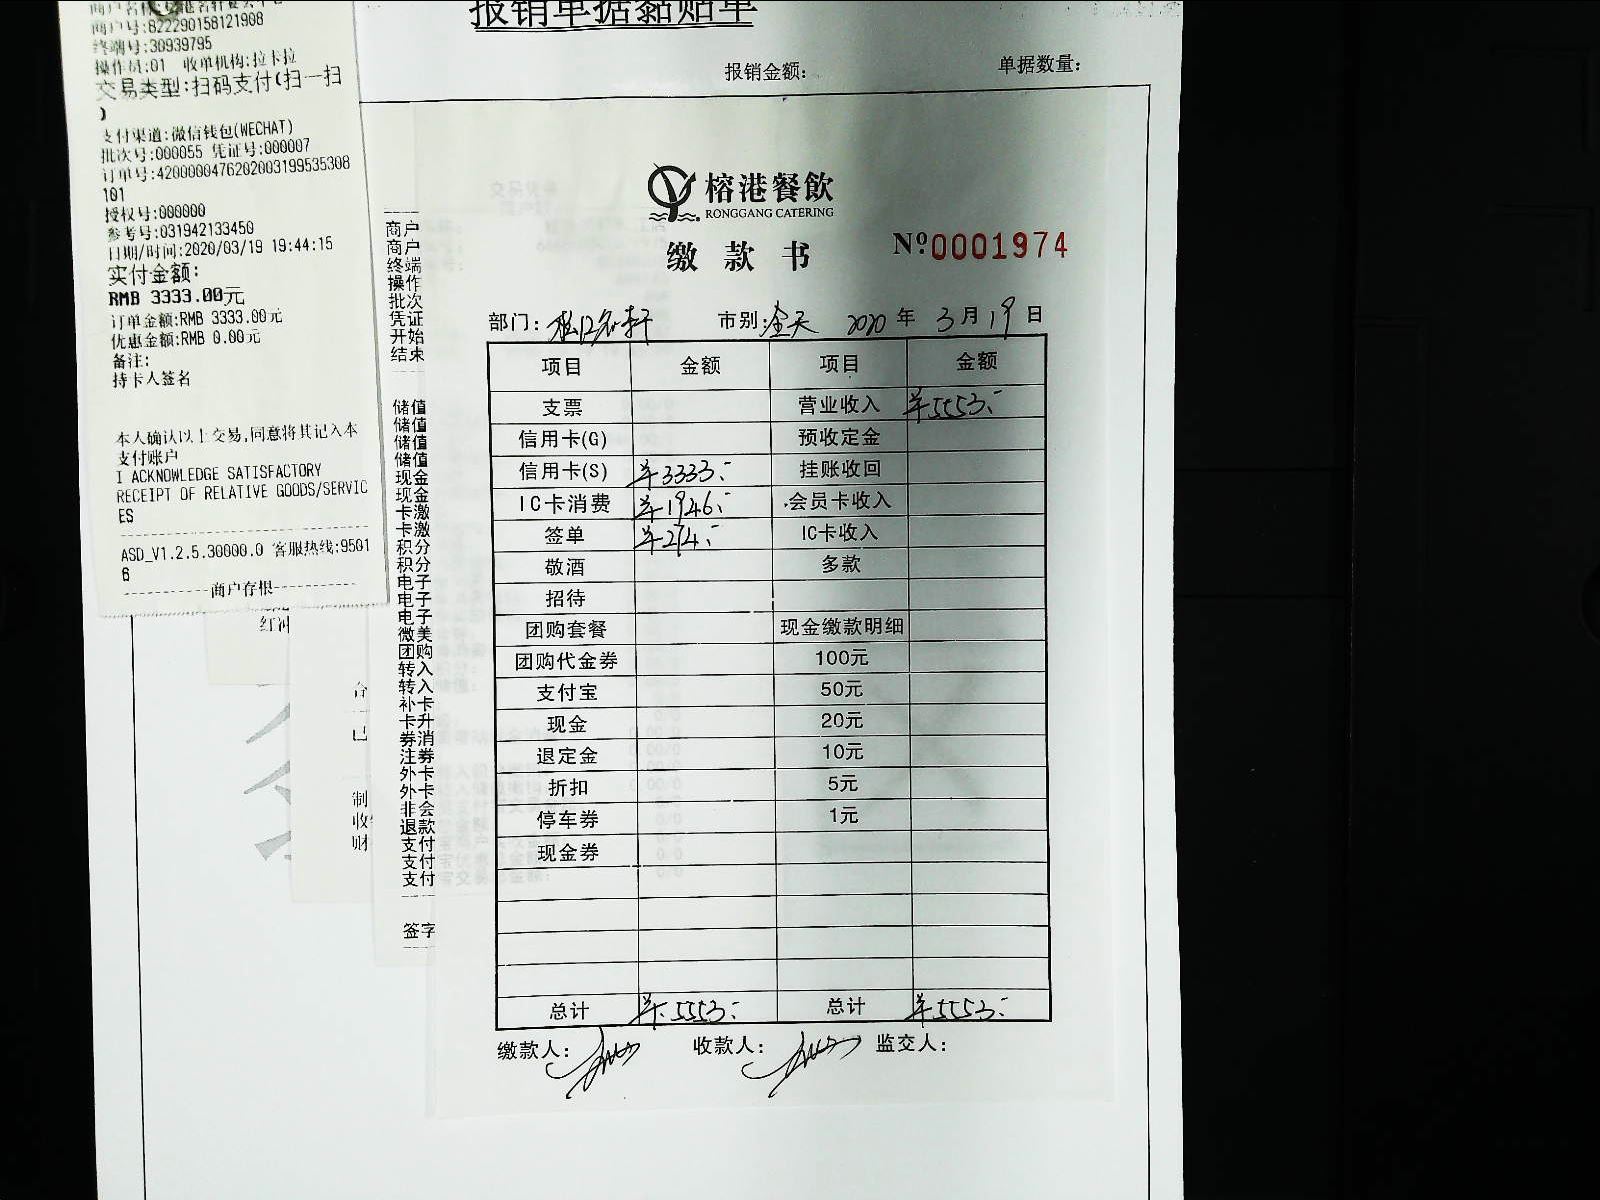 报销单据黏贴单
报销金额: 单据数量:
商户号:822290158121908
终端号:30939795
操作员:01 收单机构:拉卡拉
交易类型:扫码支付(扫一扫
)
支付渠道:微信钱包(WECHAT)
批次号:000055 凭证号:000007
订单号:4200000476202003199535308
101
授权号:000000
参考号:031942133450
日期/时间:2020/03/19 19:44:15
实付金额:
RMB 3333.00元
订单金额:RMB 3333.00元
优惠金额:RMB 0.00元
备注:
持卡人签名
本人确认以上交易,同意将其记入本
支付账户
I ACKNOWLEDGE SATISFACTORY
RECEIPT OF RELATIVE GOODS/SERVIC
ES
ASD_V1.2.5.30000.0 客服热线:9501
6
商户存根
红冲
合
已
制
收
财
商户
商户
终端
操作
批次
凭证
开始
结束
储值
储值
储值
储值
现金
现金
卡激
卡激
积分
积分
电子
电子
电子
微美
团购
转入
转入
补卡
卡升
券消
注券
外卡
外卡
非会
退款
支付
支付
支付
签字
榕港餐飲
RONGGANG CATERING
缴款书 Nº0001974
部门: 市别:全天 2020年3月19日
项目 金额 项目 金额
支票 营业收入 ¥5553.-
信用卡(G) 预收定金
信用卡(S) ¥3333.- 挂账收回
IC卡消费 ¥1946.- 会员卡收入
签单 ¥274.- IC卡收入
敬酒 多款
招待
团购套餐 现金缴款明细
团购代金券 100元
支付宝 50元
现金 20元
退定金 10元
折扣 5元
停车券 1元
现金券
总计 ¥5553.- 总计 ¥5553.-
缴款人: 收款人: 监交人: